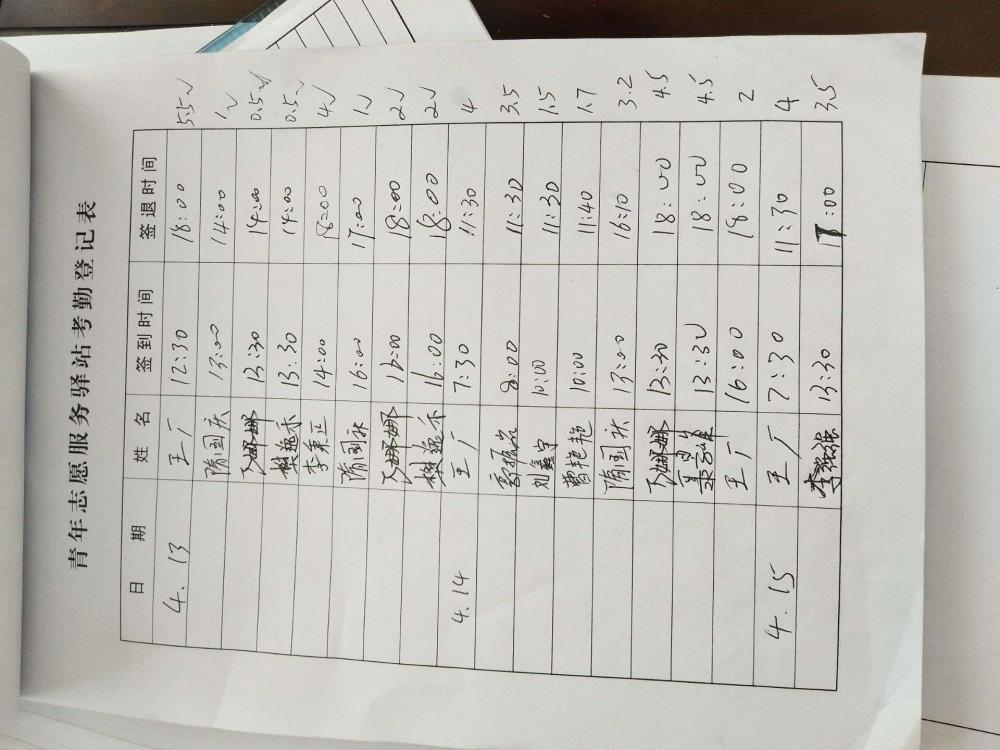 青年志愿服务驿站考勤登记表
日 期 姓 名 签到时间 签退时间
4.13 王广 12:30 18:00 5.5√
隋国庆 13:00 14:00 1√
娜娜 13:30 14:00 0.5√
樊逸示 13:30 14:00 0.5√
李秉正 14:00 18:00 4√
隋国庆 16:00 17:00 1√
娜娜 16:00 18:00 2√
樊逸示 16:00 18:00 2√
4.14 王广 7:30 11:30 4
8:00 11:30 3.5
刘鑫宇 10:00 11:30 1.5
曹艳艳 10:00 11:40 1.7
隋国庆 13:00 16:10 3.2
娜娜 13:30 18:00 4.5
13:30 18:00 4.5
王广 16:00 18:00 2
4.15 王广 7:30 11:30 4
李 13:30 17:00 3.5